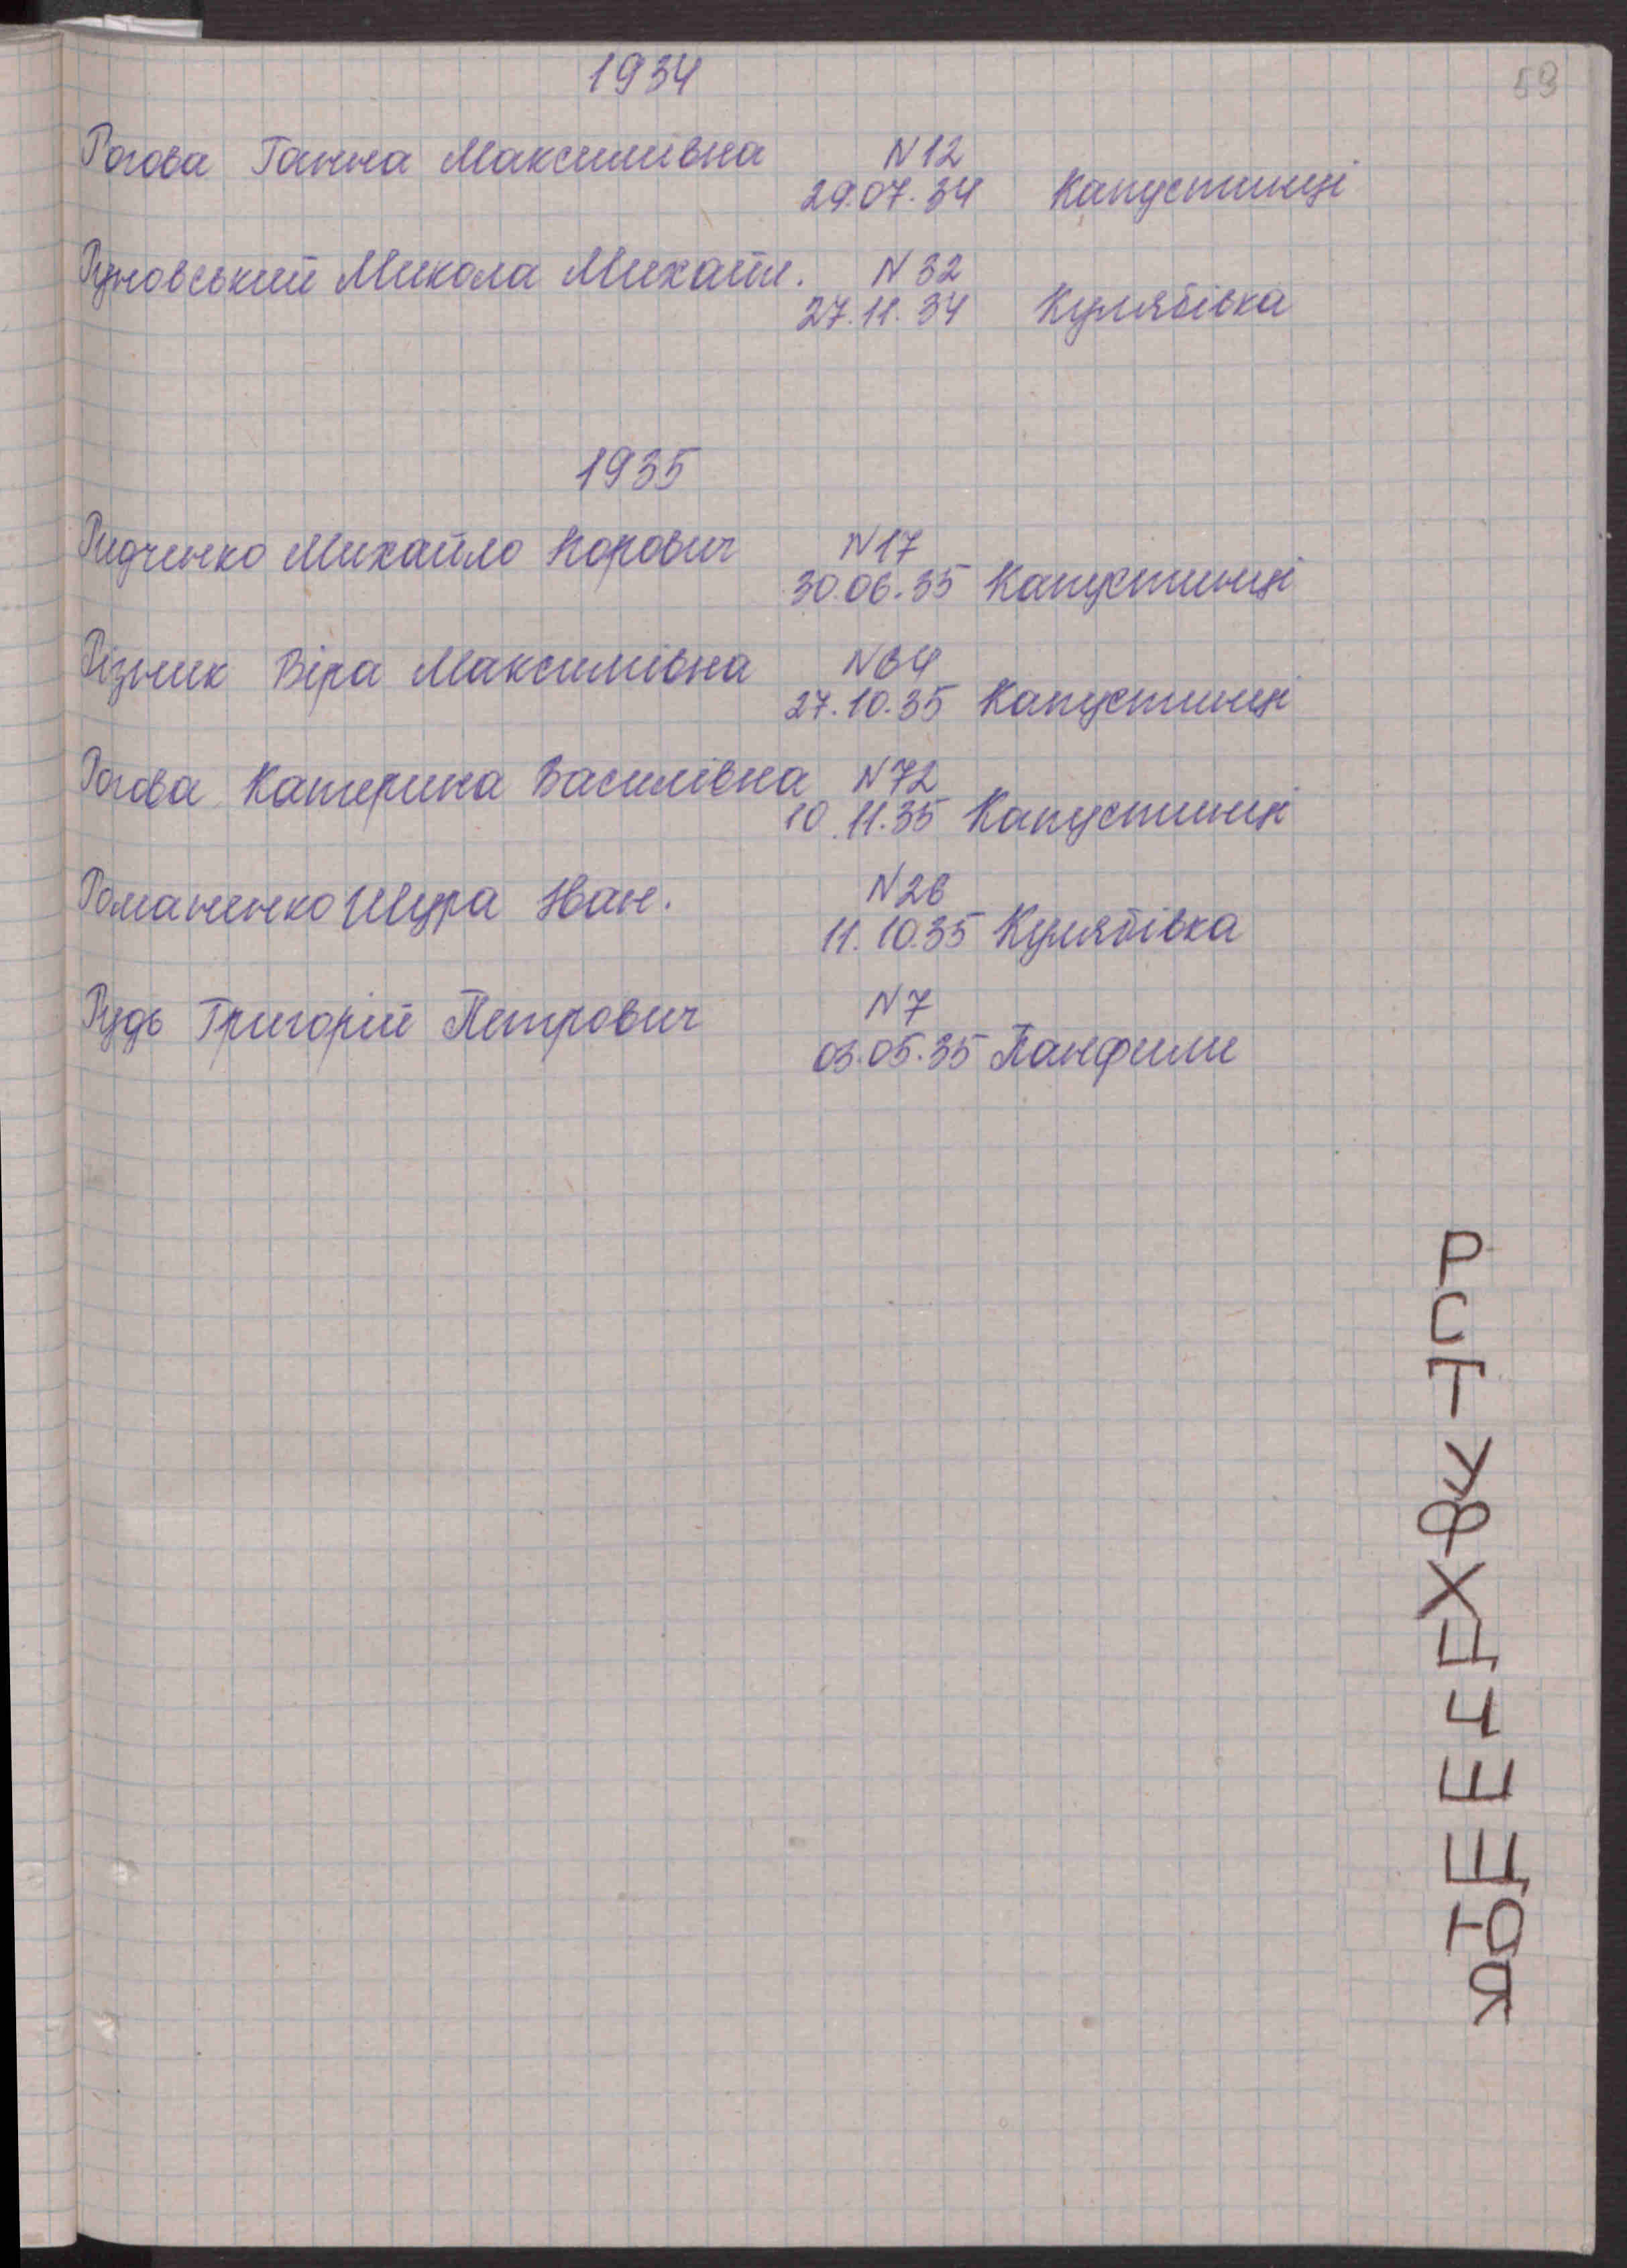 59
1934
Рогова Ганна Максимівна N 12
29.07.34 Капустинці
Руновський Микола Михайл. N 32
27.11.34 Кулябівка
1935
Ридченко Михайло Корович N 17
30.06.35 Капустинці
Різник Віра Максимівна N 64
27.10.35 Капустинці
Рогова Катерина Василівна N 72
10.11.35 Капустинці
Романенко Шура Іван. N 26
11.10.35 Кулябівка
Рудь Григорій Петрович N 7
03.05.35 Панфили
Р
С
Т
У
Ф
Х
Ц
Ч
Ш
Щ
Ю
Я